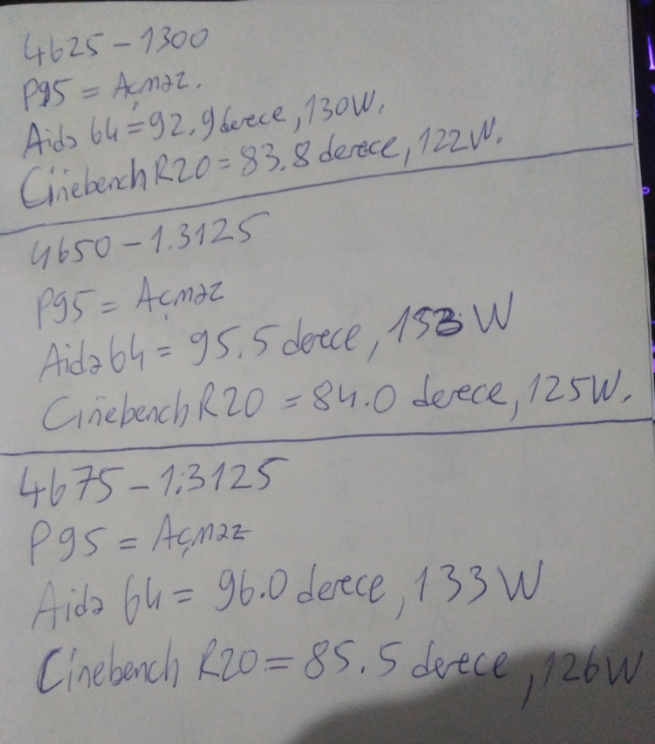 4625 - 1300
P95 = Açmaz.
Aida 64 = 92.9 derece, 130W.
Cinebench R20 = 83.8 derece, 122W.
4650 - 1.3125
P95 = Açmaz
Aida 64 = 95.5 derece, 133 W
Cinebench R20 = 84.0 derece, 125W.
4675 - 1.3125
P95 = Açmaz
Aida 64 = 96.0 derece, 133 W
Cinebench R20 = 85.5 derece, 126W